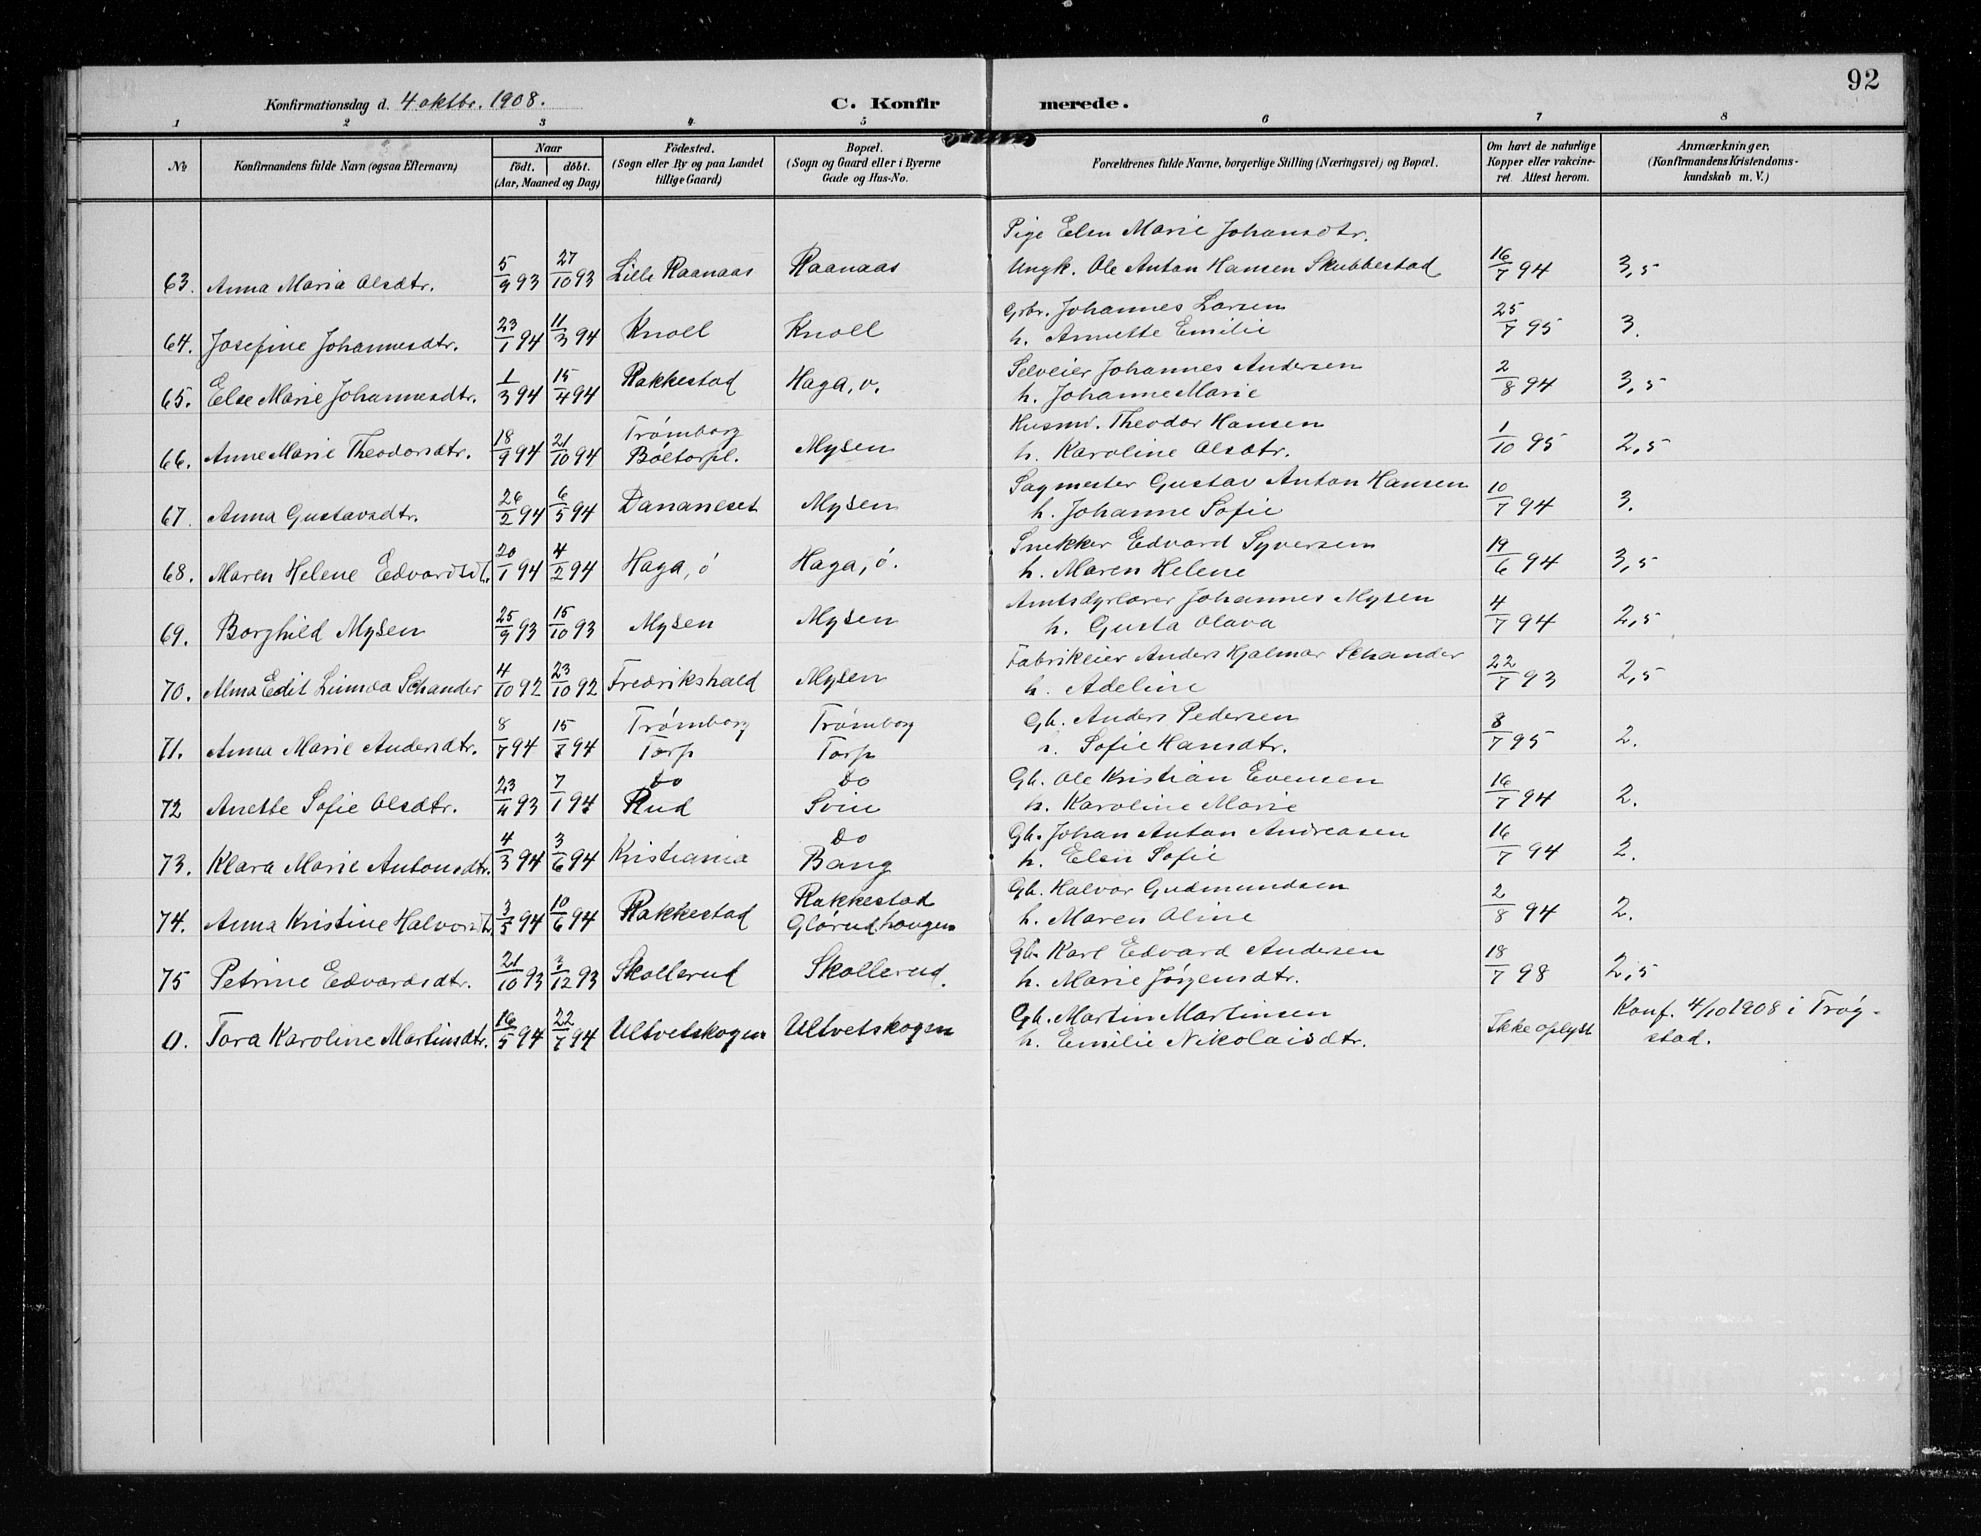 92
Konfirmationsdag d. 4 oktbr. 1908. C. Konfirmerede.
1 2 3 4 5 6 7 8
No Konfirmandens fulde Navn (ogsaa Efternavn) Naar födt. döbt. (Aar, Maaned og Dag) Födested. (Sogn eller By og paa Landet tillige Gaard) Bopæl. (Sogn og Gaard eller i Byerne Gade og Hus-No. Forældrenes fulde Navne, borgerlige Stilling (Næringsvei) og Bopæl. Om havt de naturlige Kopper eller vakcineret Attest herom. Anmærkninger, (Konfirmandens Kristendomskundskab m. V.)
Pige Elen Marie Johansdtr.
63. Anna Maria Olsdtr. 5/9 93 27/10 93 Lille Raanaas Raanaas Ungk. Ole Anton Hansen Skubbestad 16/7 94 3,5
Grbr. Johannes Larsen
64. Josefine Johannesdtr. 23/1 94 11/3 94 Knoll Knoll h. Annette Emilie 25/7 95 3.
Selveier Johannes Andersen
65. Else Marie Johannesdtr. 1/3 94 15/4 94 Rakkestad Haga, v. h. Johanne Marie 2/8 94 3,5
Trømborg Husm. Theodor Hansen
66. Anne Marie Theodorsdtr. 18/9 94 21/10 94 Böetorpl. Mysen h. Karoline Olsdtr. 1/10 95 2,5
Sagmester Gustav Anton Hansen
67. Anna Gustavsdtr. 26/2 94 6/5 94 Dananeset Mysen h. Johanne Sofie 10/7 94 3.
Snekker Edvard Syversen
68. Maren Helene Edvardsdt. 20/1 94 4/2 94 Haga, ö Haga, ö. h. Maren Helene 19/6 94 3,5
Amtsdyrlæer Johannes Mysen
69. Borghild Mysen 25/9 93 15/10 93 Mysen Mysen h. Gusta Olava 4/7 94 2,5
Fabrikeier Anders Hjalmar Schander
70. Alma Edit Linnéa Schander 4/10 92 23/10 92 Fredrikshald Mysen h. Adeline 22/7 93 2,5
Trømborg Trømborg Gb. Anders Pedersen
71. Anna Marie Andersdtr. 8/7 94 15/7 94 Torp Torp h. Sofie Hansdtr. 8/7 95 2.
Do Do Gb. Ole Kristian Evensen
72 Anette Sofie Olsdtr. 23/11 93 7/1 94 Rud Svin h. Karoline Marie 16/7 94 2.
Do Gb. Johan Anton Andreasen
73. Klara Marie Antonsdtr. 4/3 94 3/6 94 Kristiania Bang h. Elen Sofie 16/7 94 2.
Rakkestad Gb. Halvor Gudmundsen
74. Anna Kristine Halvorsdt. 3/5 94 10/6 94 Rakkestad Glørudhaugen h. Maren Oline 2/8 94 2.
Gb. Karl Edvard Andersen
75 Petrine Edvardsdtr. 21/10 93 3/12 93 Skollerud Skollerud. h. Marie Jørgensdtr. 18/7 98 2,5
Gb. Martin Martinsen Konf. 4/10 1908 i Trøg-
0. Tora Karoline Martinsdtr. 16/5 94 22/7 94 Ultvetskogen Ultvetskogen h. Emilie Nikolaisdtr. Ikke oplyst stad.